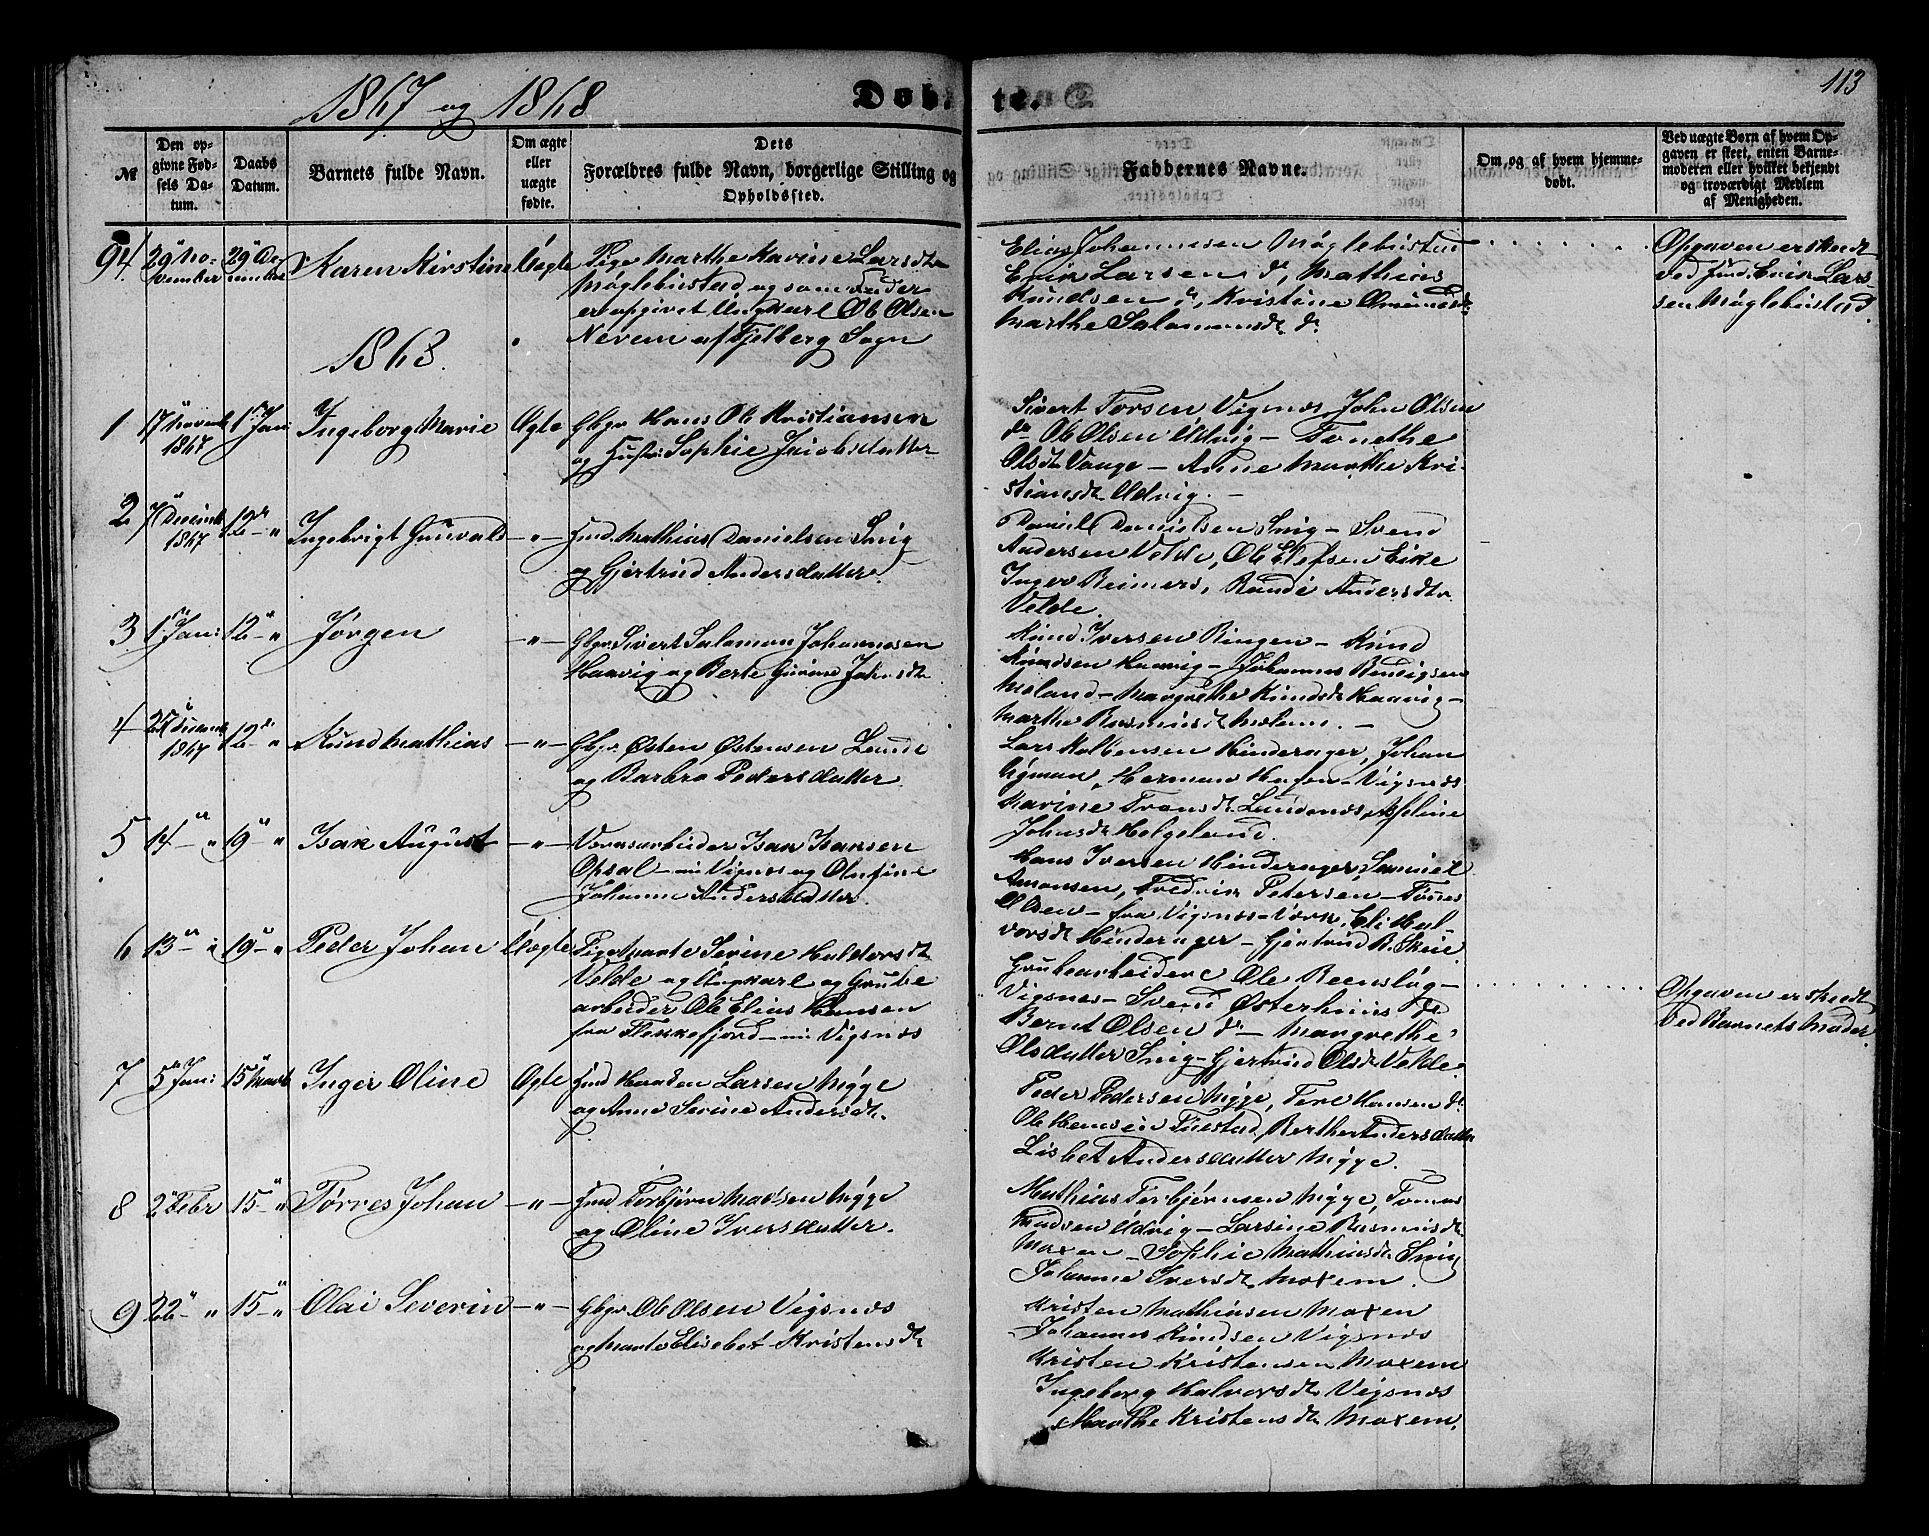 1867 og 1868
Døbte.
113
№
Den opgivne Fødsels Datum.
Daabs Datum.
Barnets fulde Navn.
Om ægte eller uægte fødte.
Dets Forældres fulde Navn, borgerlige Stilling og Opholdssted.
Faddernes Navne.
Om og af hvem hjemmedøbt.
Ved uægte Børn af hvem Opgaven er skeet, enten Barnemoderen eller hvilket bekjendt og troværdigt Medlem af Menigheden.
94
29 November
29 December
Karen Kirstine
Uægte
Pige Marthe Karine Larsdtr
Møglebustad og som Fader
er opgivet Ungkarl Ole Olsen
Nerem af Fjelberg Sogn
Elias Johannesen Møglebustad
Erik Larsen do, Mathias
Knudsen do, Kristine Omundsdt
Marthe Salamonsdt do
Opgaven er skeedt
ved Gmd. Erik Lar-
sen Møglebustad.
1868.
1
17 Novemb 1867
1 Jan:
Ingeborg Marie
Ægte
Gbgr Hans Ole Kristiansen
og Hustru Sophie Jacobsdatter
Sivert Torsen Vigsnæs, John Olsen
do Ole Olsen Udvig - Tonethe
Olsdt Vaage - Anne Marthe Kri-
stiansdt Udvig. -
2
7 Decemb 1867
12 - "
Ingebrigt Gunvald
- " -
Gmd. Mathias Danielsen Snig
og Gjertrud Andersdatter.
Daniel Danielsen Snig - Svend
Andersen Velde, Ole Elefsen Eike
Inger Reimers, Randi Andersdtr
Velde.
3
1 Jan:
12 - "
Jørgen
- " -
Gbgr. Sivert Salamon Johannesen
Haavig og Berte Gurine Johnsdt.
Knud Iversen Ringen - Knud
Knudsen Haavig - Johannes Knudsen
Meland - Margrethe Knudsdt Haavig -
Marthe Rasmusdt Meland. -
4
Decemb 1867
12 - "
Knud Mathias
- " -
Gbgr. Østen Østensen Lande
og Barbro Pedersdatter.
Lars Kolbensen Hinderager, Johan
Hermann - Vigsnæs
Karine
Johnsdt Helgeland.
5
14 - "
19 - "
Isak August
- " -
Værksarbeider Isak Isaksen
Opsal - nu Vigsnæs og Olufine
Johanne Andersdatter.
Hans Iversen Hinderager, Samuel
Amonsen, Fredrik Petersen - Tønnes
Olsen - fra Vigsnæs - Værk, Eli Hal-
vorsdt Hinderager - Gjertrud B. Skeie
6
13 - "
19 - "
Peder Johan
Uægte
Pige Marte Serine Haldorsdt.
Velde og Ungkarl og Grube
arbeider Ole Elias Hansen
fra Flekkefjord - nu Vigsnæs
Grubearbeidere Ole Reenslog -
Vigsnes - Svend Østerhuus do
Bernt Olsen do - Margrethe
Olsdatter Snig - Gjertrud Olsdt Velde.
Opgaven er skeedt
ved Barnets Moder.
7
5 Jan:
15 Marts
Inger Oline
Ægte
Gmd Haaken Larsen Nygge
og Anne Serine Andersdt.
Peder Pedersen Nygge, Tere Hansen do.
Ole Hansen Tuestad, Berthe Andersdatter
Lisbet Andersdatter Nygge.
8
2 Febr
15 - "
Tørres Johan
- " -
Gmd Torbjørn Madsen Nygge
og Oline Iversdatter.
Mathias Torbjørnsen Nygge, Tomas
Udvig - Larsine Rasmusdt
Moxen - Sophie Mathiasdt Snig
Johanne Iversdt Moxem.
9
22 - "
15 - "
Olai Severin
- " -
Gbgr. Ole Olsen Vigsnæs
og Marte Elisebet Kristensdt.
Kristen Mathiasen Moxen
Johannes Knudsen Vigsnæs
Kristen Kristensen Moxem
Ingeborg Halvorsdt Vigsnæs
Marthe Kristensdt Moxem.